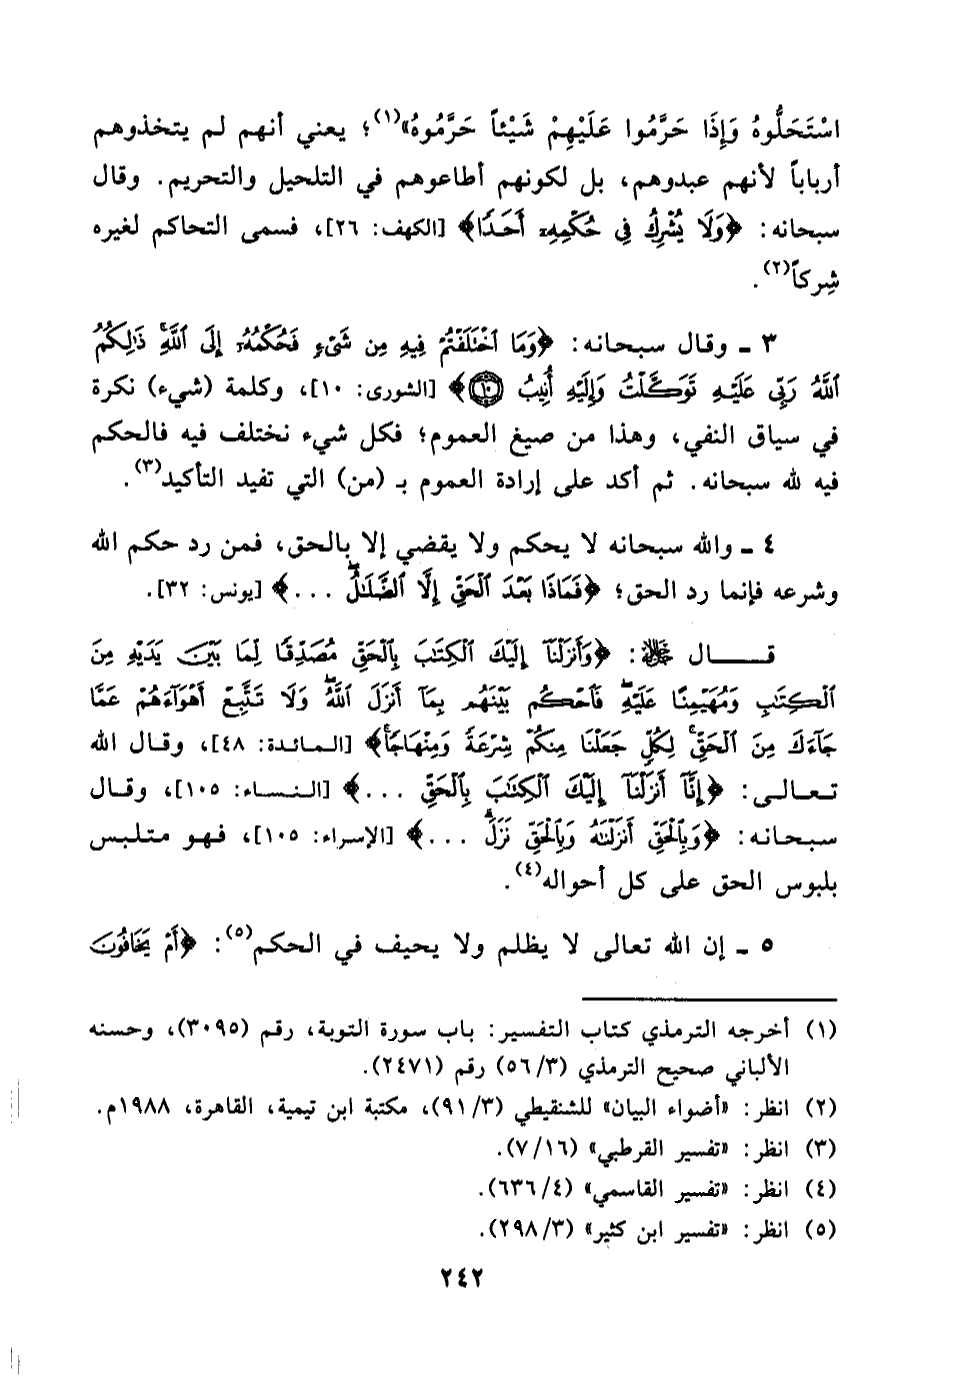 اسْتَحَلُّوهُ وَإِذَا حَرَّمُوا عَلَيْهِمْ شَيْئاً حَرَّمُوهُ»(١)؛ يعني أنهم لم يتخذوهم
أرباباً لأنهم عبدوهم، بل لكونهم أطاعوهم في التلحيل والتحريم. وقال
سبحانه: ﴿وَلَا يُشْرِكُ فِي حُكْمِهِۦٓ أَحَدًا﴾ [الكهف: ٢٦]، فسمى التحاكم لغيره
شِركاً(٢).
٣ ـ وقال سبحانه: ﴿وَمَا ٱخْتَلَفْتُمْ فِيهِ مِن شَىْءٍ فَحُكْمُهُۥٓ إِلَى ٱللَّهِ ۚ ذَٰلِكُمُ
ٱللَّهُ رَبِّى عَلَيْهِ تَوَكَّلْتُ وَإِلَيْهِ أُنِيبُ ١٠﴾ [الشورى: ١٠]، وكلمة (شيء) نكرة
في سياق النفي، وهذا من صيغ العموم؛ فكل شيء نختلف فيه فالحكم
فيه لله سبحانه. ثم أكد على إرادة العموم بـ (من) التي تفيد التأكيد(٣).
٤ ـ والله سبحانه لا يحكم ولا يقضي إلا بالحق، فمن رد حكم الله
وشرعه فإنما رد الحق؛ ﴿فَمَاذَا بَعْدَ ٱلْحَقِّ إِلَّا ٱلضَّلَٰلُ ۖ ...﴾ [يونس: ٣٢].
قـــال ﷻ: ﴿وَأَنزَلْنَآ إِلَيْكَ ٱلْكِتَٰبَ بِٱلْحَقِّ مُصَدِّقًا لِّمَا بَيْنَ يَدَيْهِ مِنَ
ٱلْكِتَٰبِ وَمُهَيْمِنًا عَلَيْهِ ۖ فَٱحْكُم بَيْنَهُم بِمَآ أَنزَلَ ٱللَّهُ ۖ وَلَا تَتَّبِعْ أَهْوَآءَهُمْ عَمَّا
جَآءَكَ مِنَ ٱلْحَقِّ ۚ لِكُلٍّ جَعَلْنَا مِنكُمْ شِرْعَةً وَمِنْهَاجًا ۚ﴾ [المائدة: ٤٨]، وقال الله
تعالى: ﴿إِنَّآ أَنزَلْنَآ إِلَيْكَ ٱلْكِتَٰبَ بِٱلْحَقِّ ...﴾ [النساء: ١٠٥]، وقال
سبحانه: ﴿وَبِٱلْحَقِّ أَنزَلْنَٰهُ وَبِٱلْحَقِّ نَزَلَ ۗ ...﴾ [الإسراء: ١٠٥]، فهو متلبس
بلبوس الحق على كل أحواله(٤).
٥ ـ إن الله تعالى لا يظلم ولا يحيف في الحكم(٥): ﴿أَمْ يَخَافُونَ
(١) أخرجه الترمذي كتاب التفسير: باب سورة التوبة، رقم (٣٠٩٥)، وحسنه
الألباني صحيح الترمذي (٥٦/٣) رقم (٢٤٧١).
(٢) انظر: «أضواء البيان» للشنقيطي (٩١/٣)، مكتبة ابن تيمية، القاهرة، ١٩٨٨م.
(٣) انظر: «تفسير القرطبي» (٧/١٦).
(٤) انظر: «تفسير القاسمي» (٦٣٦/٤).
(٥) انظر: «تفسير ابن كثير» (٢٩٨/٣).
٢٤٢